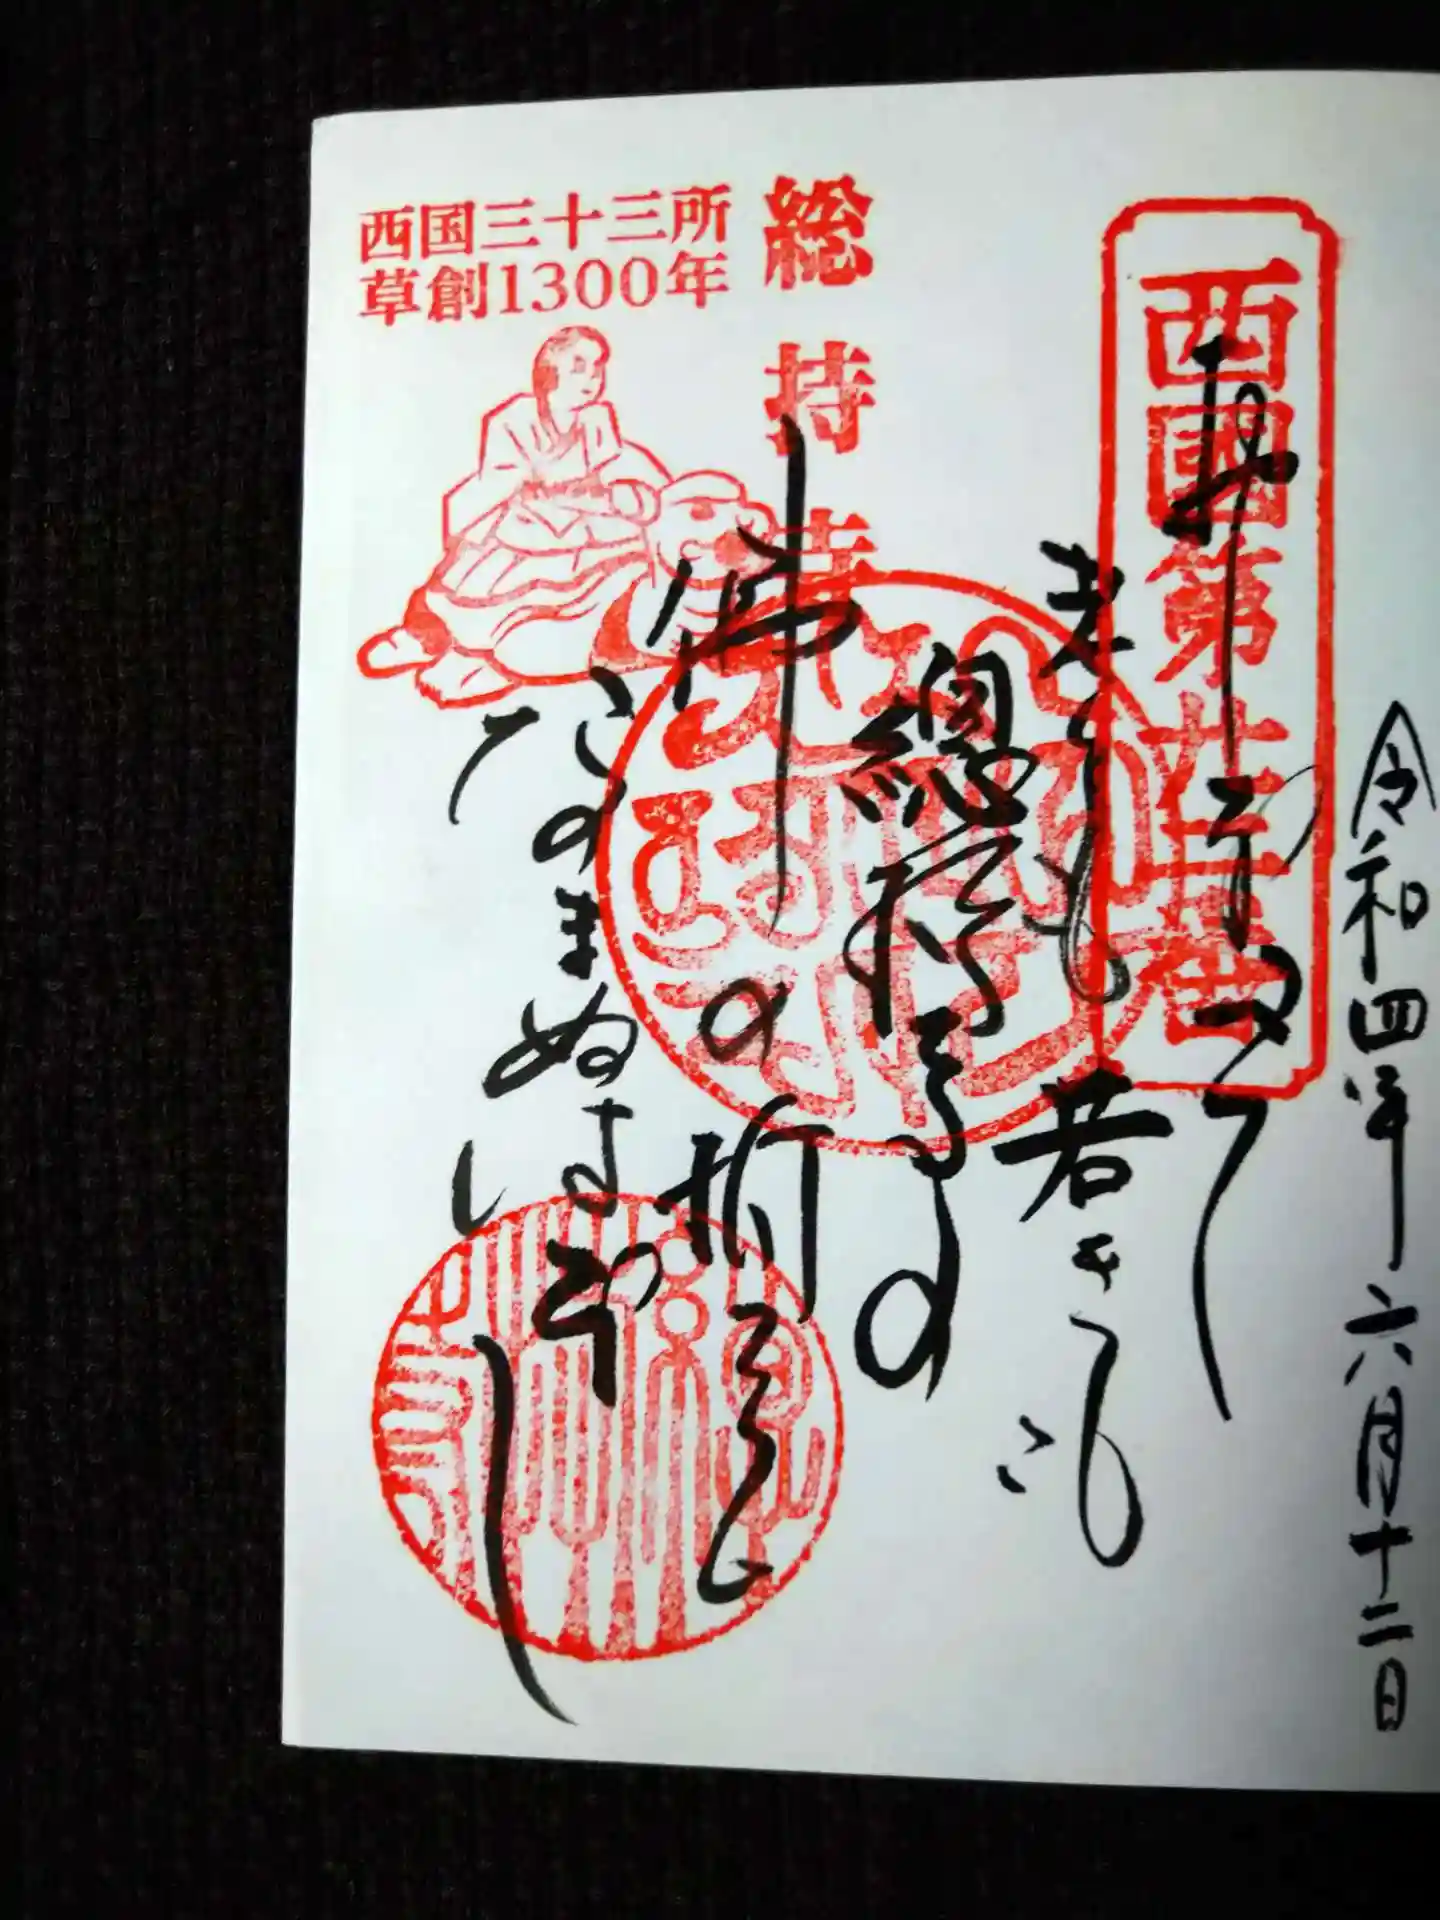 令和四年六月十二日
西國第廿二番
おしなべて
老いも若きも
總持寺の
総持寺
佛の誓
たのまぬはなし
西国三十三所
草創1300年